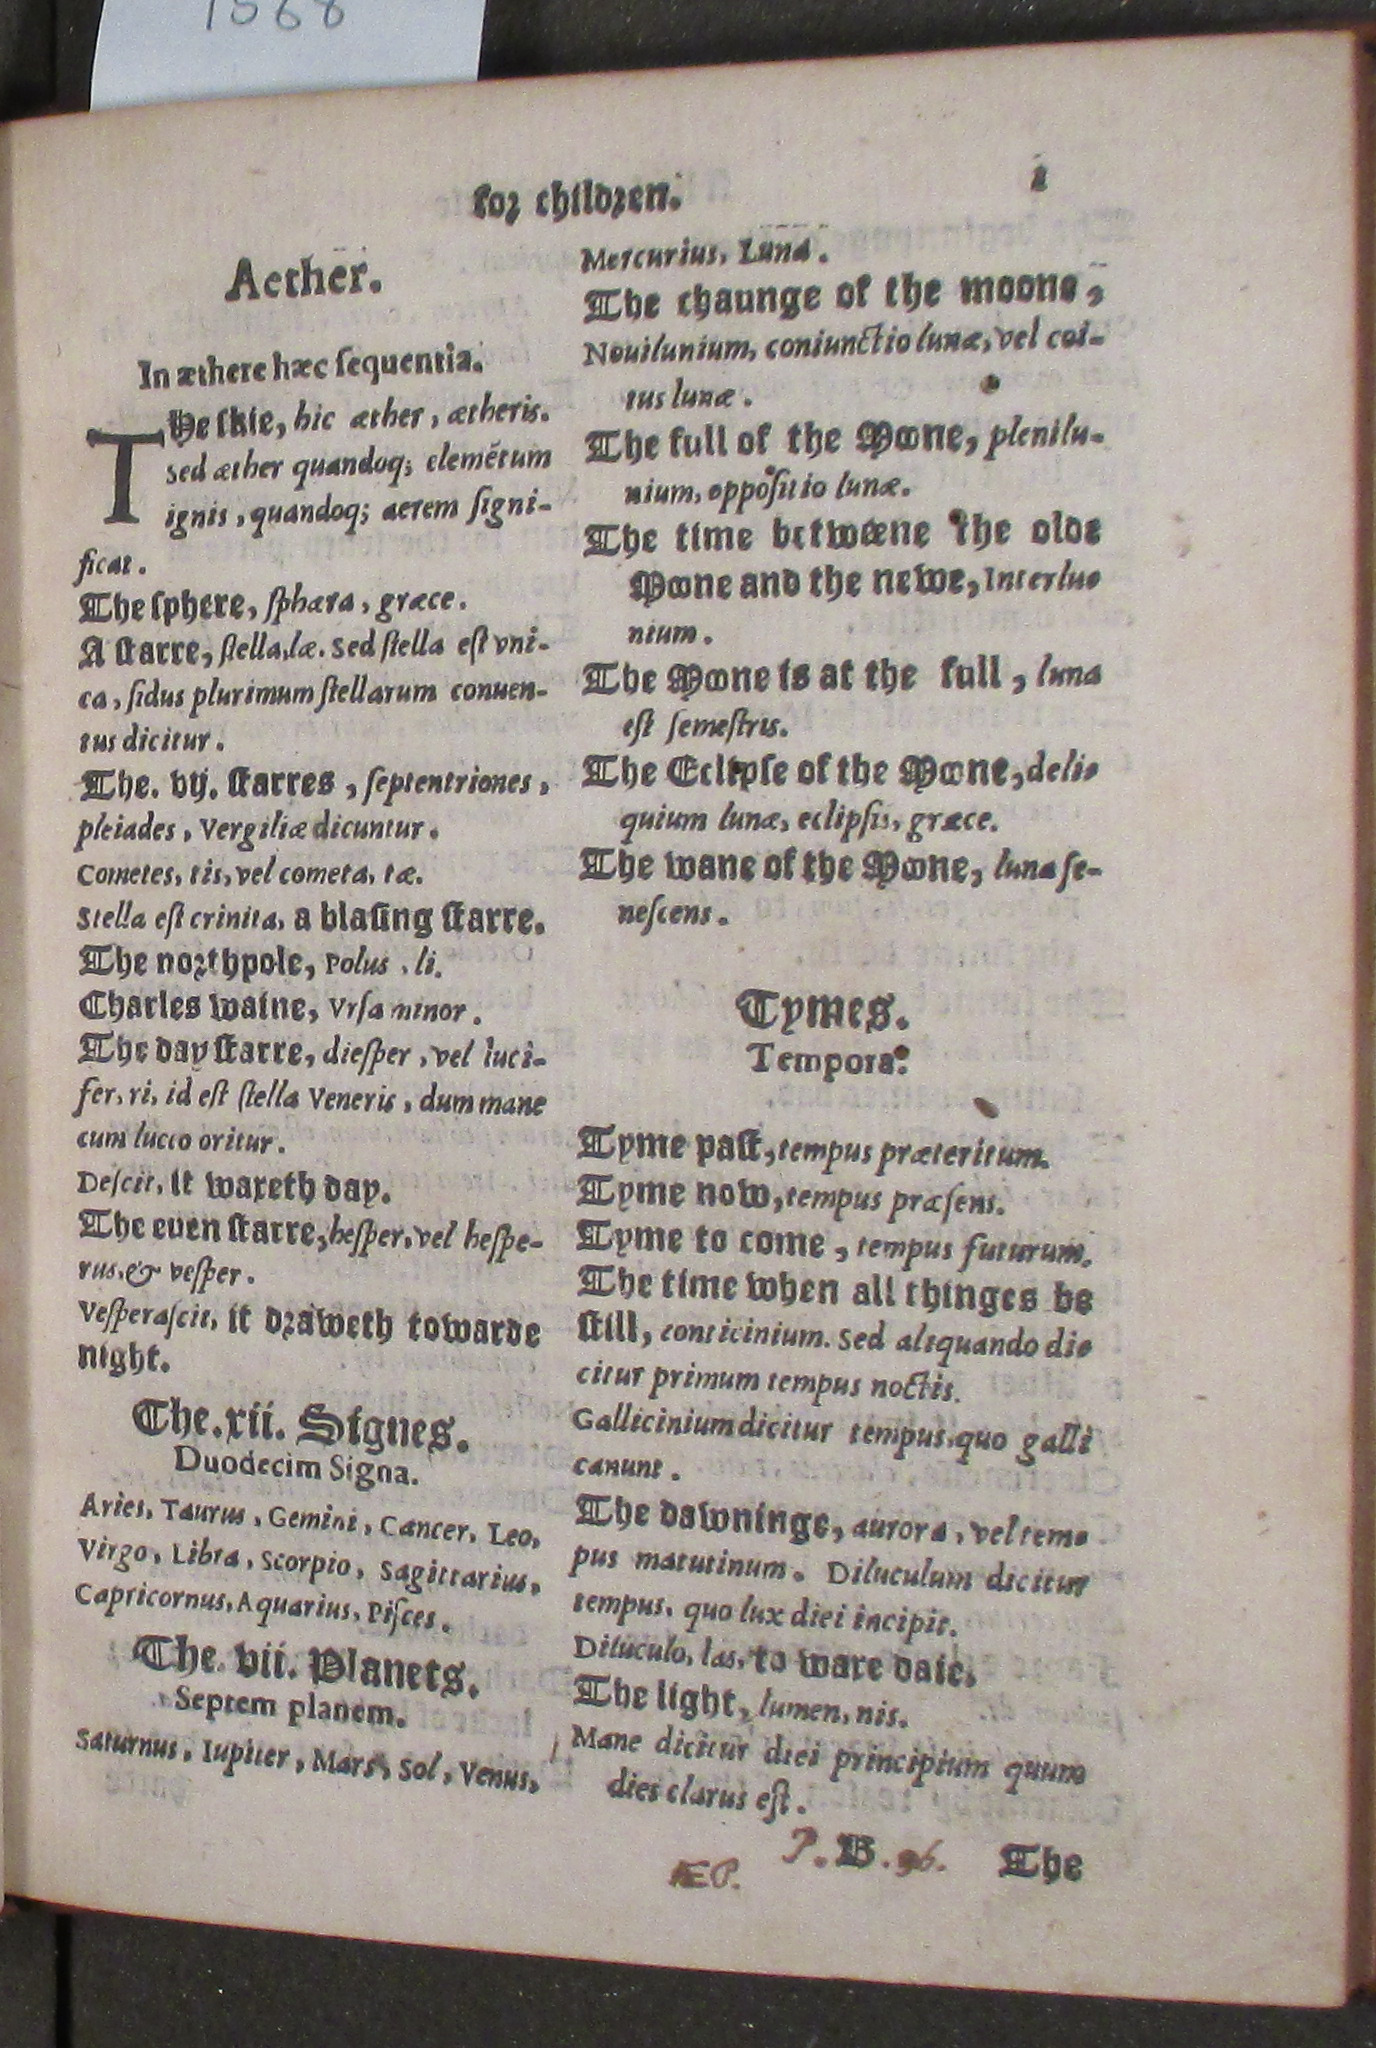 1568
for children.
1
Aether.
In æthere hæc ſequentia.
THe ſkie, hic æther, ætheris.
Sed æther quandoq; elemẽtum
ignis, quandoq; aerem ſigni-
ficat.
The ſphere, ſphæra, græce.
A ſtarre, ſtella, læ. Sed ſtella eſt vni-
ca, ſidus plurimum ſtellarum conuen-
tus dicitur.
The. vij. ſtarres, ſeptentriones,
pleiades, Vergiliæ dicuntur.
Cometes, tis, vel cometa, tæ.
Stella eſt crinita, a blaſing ſtarre.
The northpole, Polus, li.
Charles waine, Vrſa minor.
The day ſtarre, dieſper, vel luci-
fer, ri, id eſt ſtella Veneris, dum mane
cum lucco oritur.
Deſcit, it waxeth day.
The euen ſtarre, heſper, vel heſpe-
rus, & veſper.
Veſperaſcit, it draweth towarde
night.
The. xii. Signes.
Duodecim Signa.
Aries, Taurus, Gemini, Cancer, Leo,
Virgo, Libra, Scorpio, Sagittarius,
Capricornus, Aquarius, Piſces.
The. vii. Planets.
Septem planem.
Saturnus, Iupiter, Mars, Sol, Venus,
Mercurius, Luna.
The chaunge of the moone,
Nouilunium, coniunctio lunæ, vel coi-
tus lunæ.
The full of the Moone, plenilu-
nium, oppoſitio lunæ.
The time betweene the olde
Moone and the newe, Interlu-
nium.
The Moone is at the full, luna
eſt ſemeſtris.
The Eclipſe of the Moone, deli-
quium lunæ, eclipſis, græce.
The wane of the Moone, luna ſe-
neſcens.
Tymes.
Tempora.
Tyme paſt, tempus præteritum.
Tyme now, tempus præſens.
Tyme to come, tempus futurum.
The time when all thinges be
ſtill, conticinium. Sed aliquando di-
citur primum tempus noctis.
Gallicinium dicitur tempus, quo galli
canunt.
The dawninge, aurora, vel tem-
pus matutinum. Diluculum dicitur
tempus, quo lux diei incipit.
Diluculo, las, to waxe daie.
The light, lumen, nis.
Mane dicitur diei principium quum
dies clarus eſt.
P. B. 96. The
ÆP.